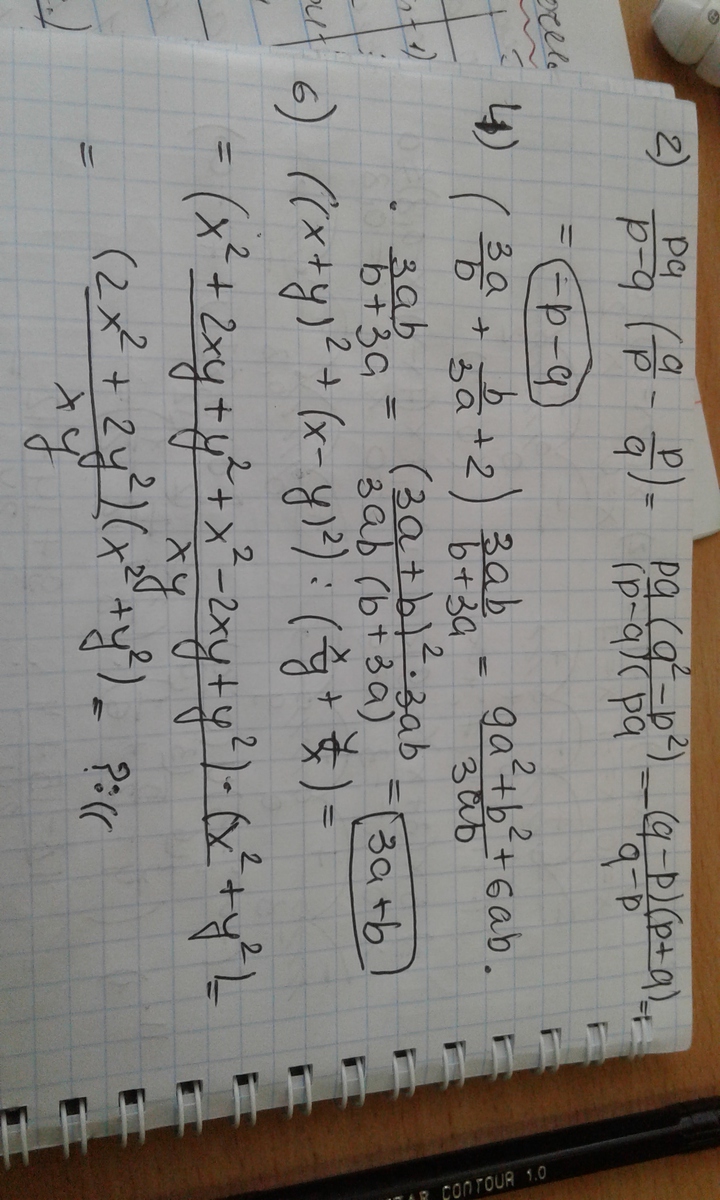 2) pq/(p-q) (q/p - p/q) = pq(q²-p²)/((p-q)(pq) = -(q-p)(p+q)/(q-p) =
= -p-q
4) (3a/b + b/3a + 2) 3ab/(b+3a) = (9a²+b²+6ab)/3ab ·
· 3ab/(b+3a) = (3a+b)²·3ab/(3ab(b+3a)) = 3a+b
6) ((x+y)²+(x-y)²) : (x/y + y/x) =
= (x²+2xy+y²+x²-2xy+y²)·(x²+y²)/xy =
= (2x²+2y²)(x²+y²)/xy = ?:((
CONTOUR 1.0